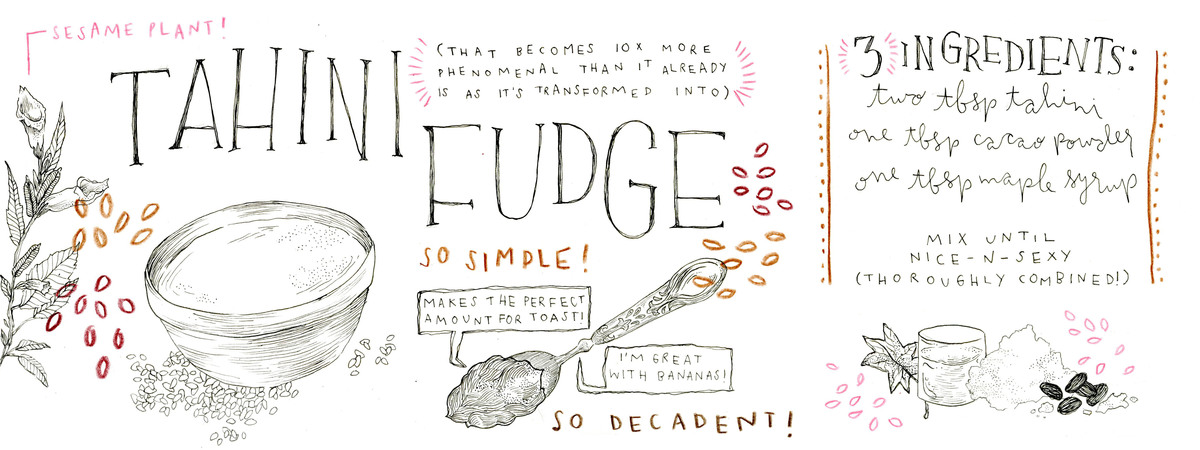 SESAME PLANT!
TAHINI
(THAT BECOMES 10X MORE
PHENOMENAL THAN IT ALREADY
IS AS IT'S TRANSFORMED INTO)
FUDGE
SO SIMPLE!
MAKES THE PERFECT
AMOUNT FOR TOAST!
I'M GREAT
WITH BANANAS!
SO DECADENT!
3 INGREDIENTS:
two tbsp tahini
one tbsp cacao powder
one tbsp maple syrup
MIX UNTIL
NICE-N-SEXY
(THOROUGHLY COMBINED!)